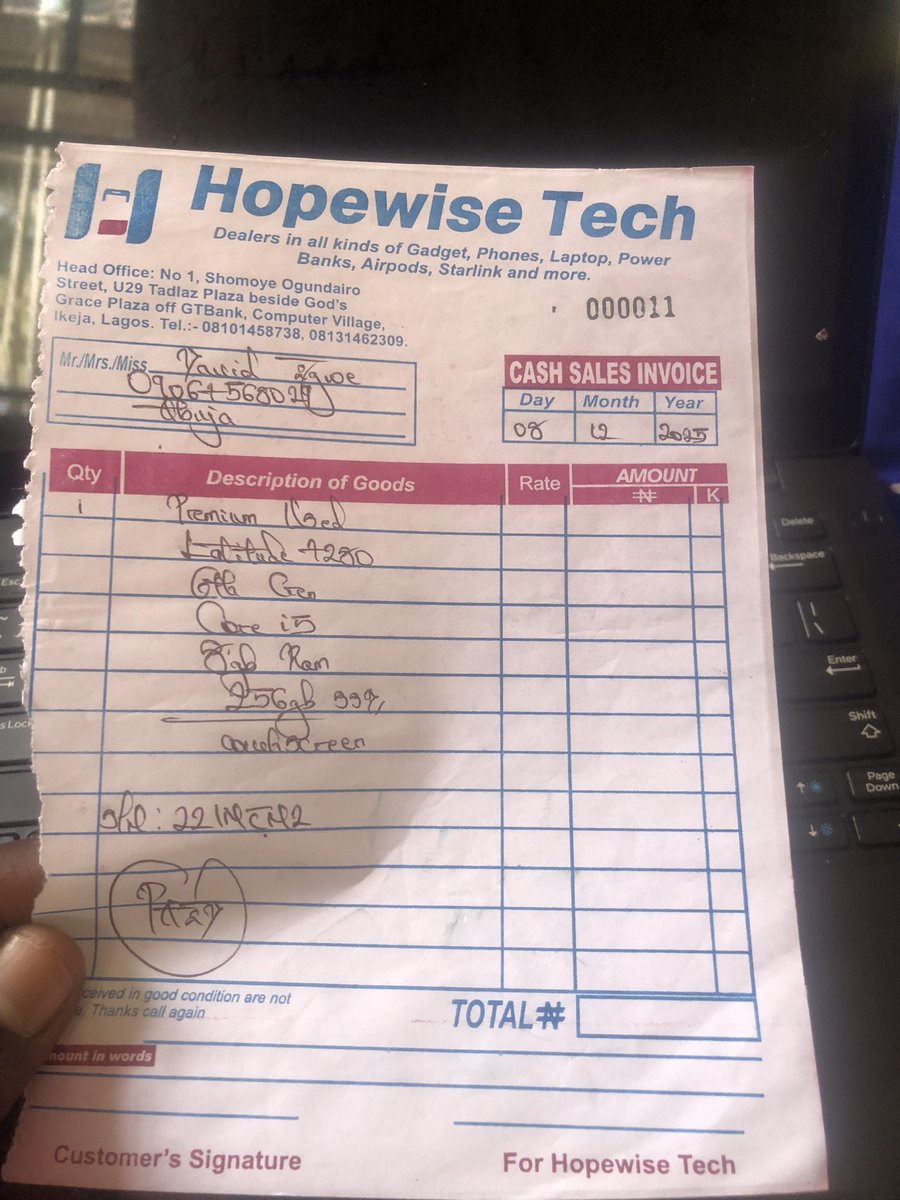 Hopewise Tech
Dealers in all kinds of Gadget, Phones, Laptop, Power
Banks, Airpods, Starlink and more.
Head Office: No 1, Shomoye Ogundairo
Street, U29 Tadlaz Plaza beside God's
Grace Plaza off GTBank, Computer Village,
Ikeja, Lagos. Tel.:- 08101458738, 08131462309.
000011
Mr./Mrs./Miss David
Abuja
CASH SALES INVOICE
Day Month Year
08 12 2025
Qty Description of Goods Rate AMOUNT
₦ K
1 Premium Used
Latitude 7280
6th Gen
Core i5
8gb Ram
256gb SSD,
touchscreen
Paid
ceived in good condition are not
Thanks call again
TOTAL ₦
mount in words
Customer's Signature
For Hopewise Tech
Delete
Backspace
Enter
Shift
Page
Down
Esc